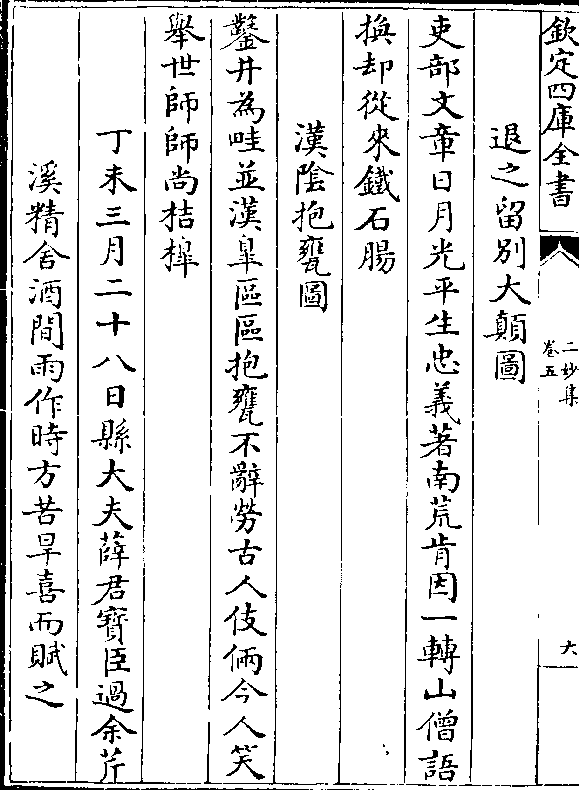 欽定四庫全書
二妙集
卷五
六
退之留別大顛圖
吏部文章日月光平生忠義著南荒肯因一轉山僧語
換却從來鐵石腸
漢陰抱甕圖
鑿井為畦並漢臯區區抱甕不辭勞古人伎倆今人笑
舉世師師尚桔槹
丁未三月二十八日縣大夫薛君寶臣過余芹
溪精舍酒間雨作時方苦旱喜而賦之